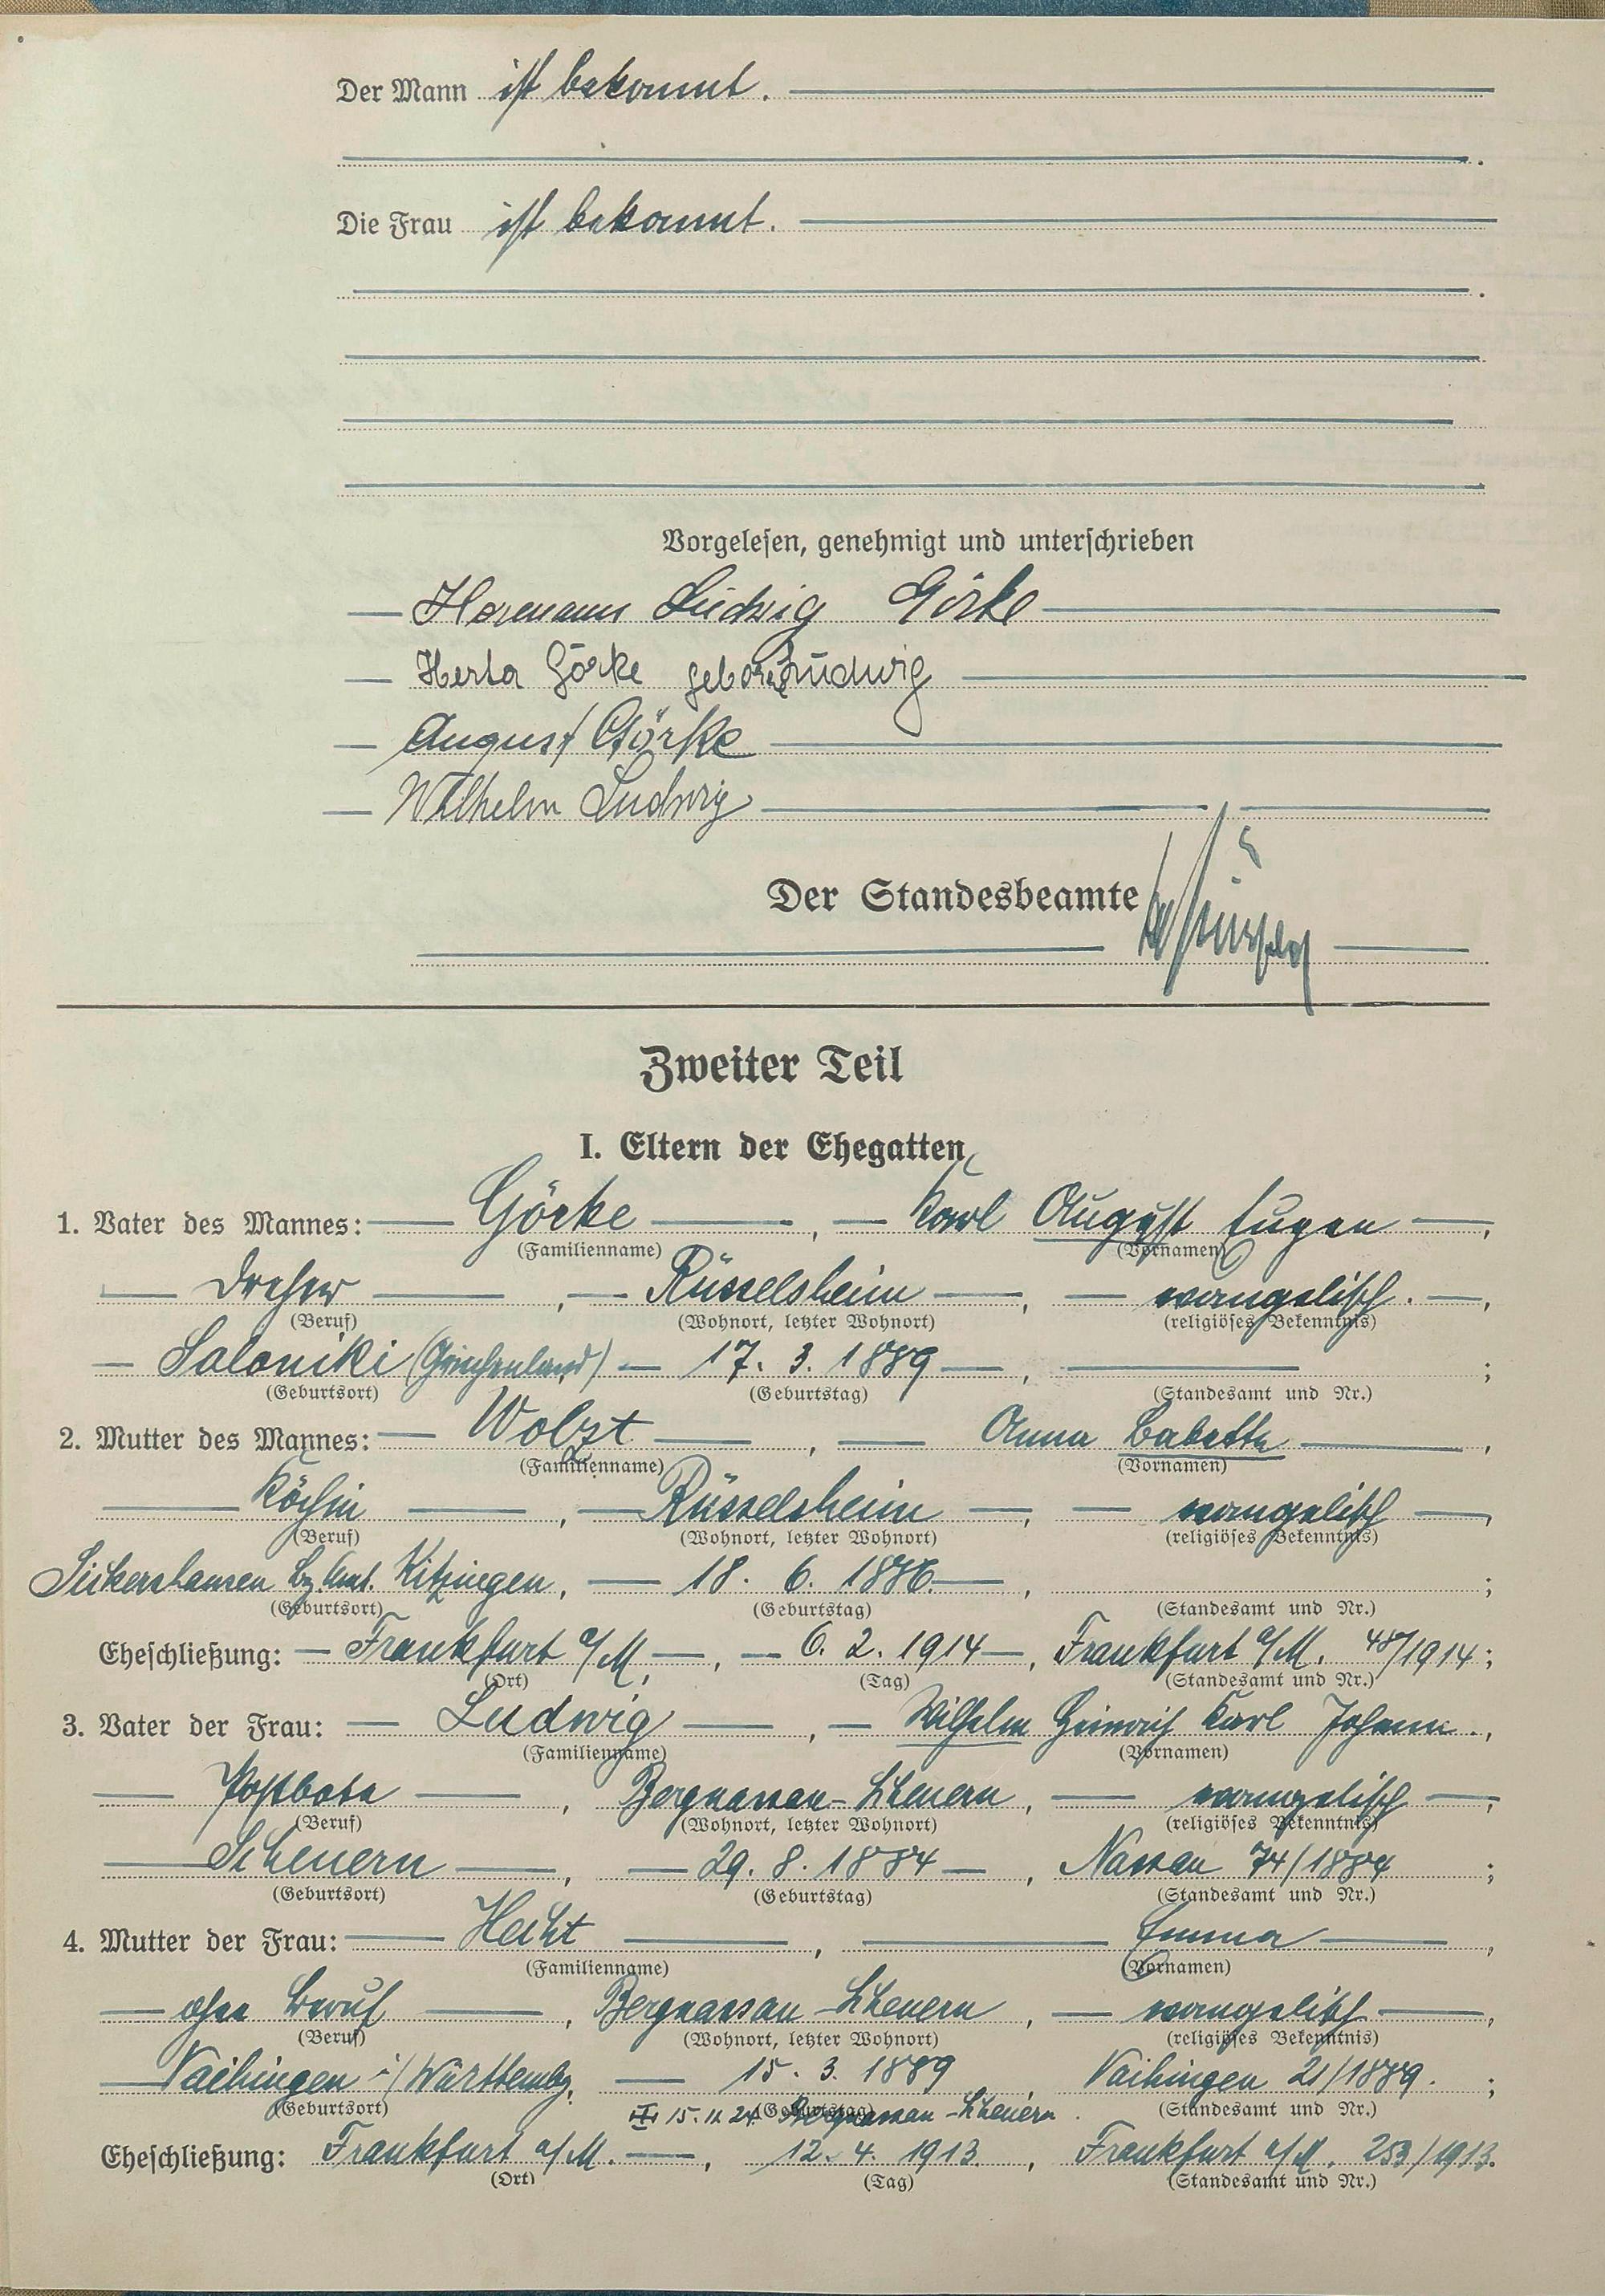 Der Mann ist bekannt.
Die Frau ist bekannt.
Vorgelesen, genehmigt und unterschrieben
Hermann Ludwig Görke
Herta Görke geborene Ludwig
August Görke
Wilhelm Ludwig
Der Standesbeamte
Zweiter Teil
I. Eltern der Ehegatten
1. Vater des Mannes: Görke, Karl August Eugen,
(Familienname) (Vornamen)
Dreher, Rüsselsheim, evangelisch.,
(Beruf) (Wohnort, letzter Wohnort) (religiöses Bekenntnis)
Saloniki (Griechenland) 17. 3. 1889, ;
(Geburtsort) (Geburtstag) (Standesamt und Nr.)
2. Mutter des Mannes: Wolzt, Anna Babette,
(Familienname) (Vornamen)
Köchin, Rüsselsheim, evangelisch,
(Beruf) (Wohnort, letzter Wohnort) (religiöses Bekenntnis)
Sickershausen Bz. Amt. Kitzingen, 18. 6. 1886, ;
(Geburtsort) (Geburtstag) (Standesamt und Nr.)
Eheschließung: Frankfurt a/M., 6. 2. 1914, Frankfurt a/M. 48/1914;
(Ort) (Tag) (Standesamt und Nr.)
3. Vater der Frau: Ludwig, Wilhelm Heinrich Karl Johann.,
(Familienname) (Vornamen)
Postbote, Bergnassau-Scheuern, evangelisch,
(Beruf) (Wohnort, letzter Wohnort) (religiöses Bekenntnis)
Scheuern, 29. 8. 1884, Nassau 74/1884;
(Geburtsort) (Geburtstag) (Standesamt und Nr.)
4. Mutter der Frau: Hecht, Emma,
(Familienname) (Vornamen)
ohne Beruf, Bergnassau-Scheuern, evangelisch,
(Beruf) (Wohnort, letzter Wohnort) (religiöses Bekenntnis)
Vaihingen i/Württembg. 15. 3. 1889, Vaihingen 21/1889.;
(Geburtsort) (Geburtstag) (Standesamt und Nr.)
15. 11. 24 Bergnassau-Scheuern.
Eheschließung: Frankfurt a/M., 12. 4. 1913, Frankfurt a/M. 253/1913.
(Ort) (Tag) (Standesamt und Nr.)